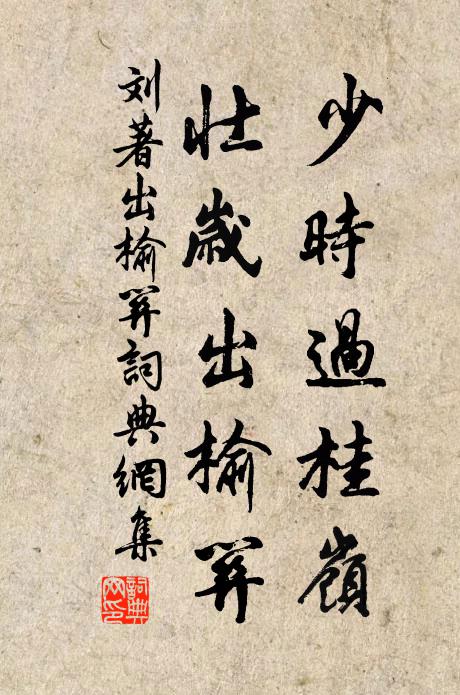 少時過桂嶺
壯歲出榆關
刘著出榆關詞典網集
詞典網印